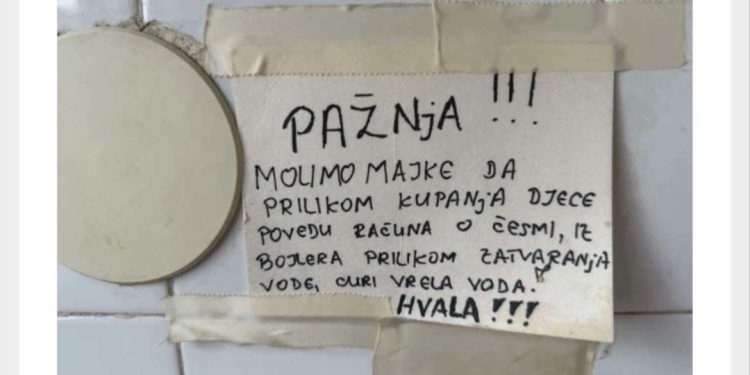 PAŽNjA !!!
MOLIMO MAJKE DA
PRILIKOM KUPANjA DJECE
POVEDU RAČUNA O ČESMI, IZ
BOJLERA PRILIKOM ZATVARANjA
VODE, CURI VRELA VODA!
HVALA!!!